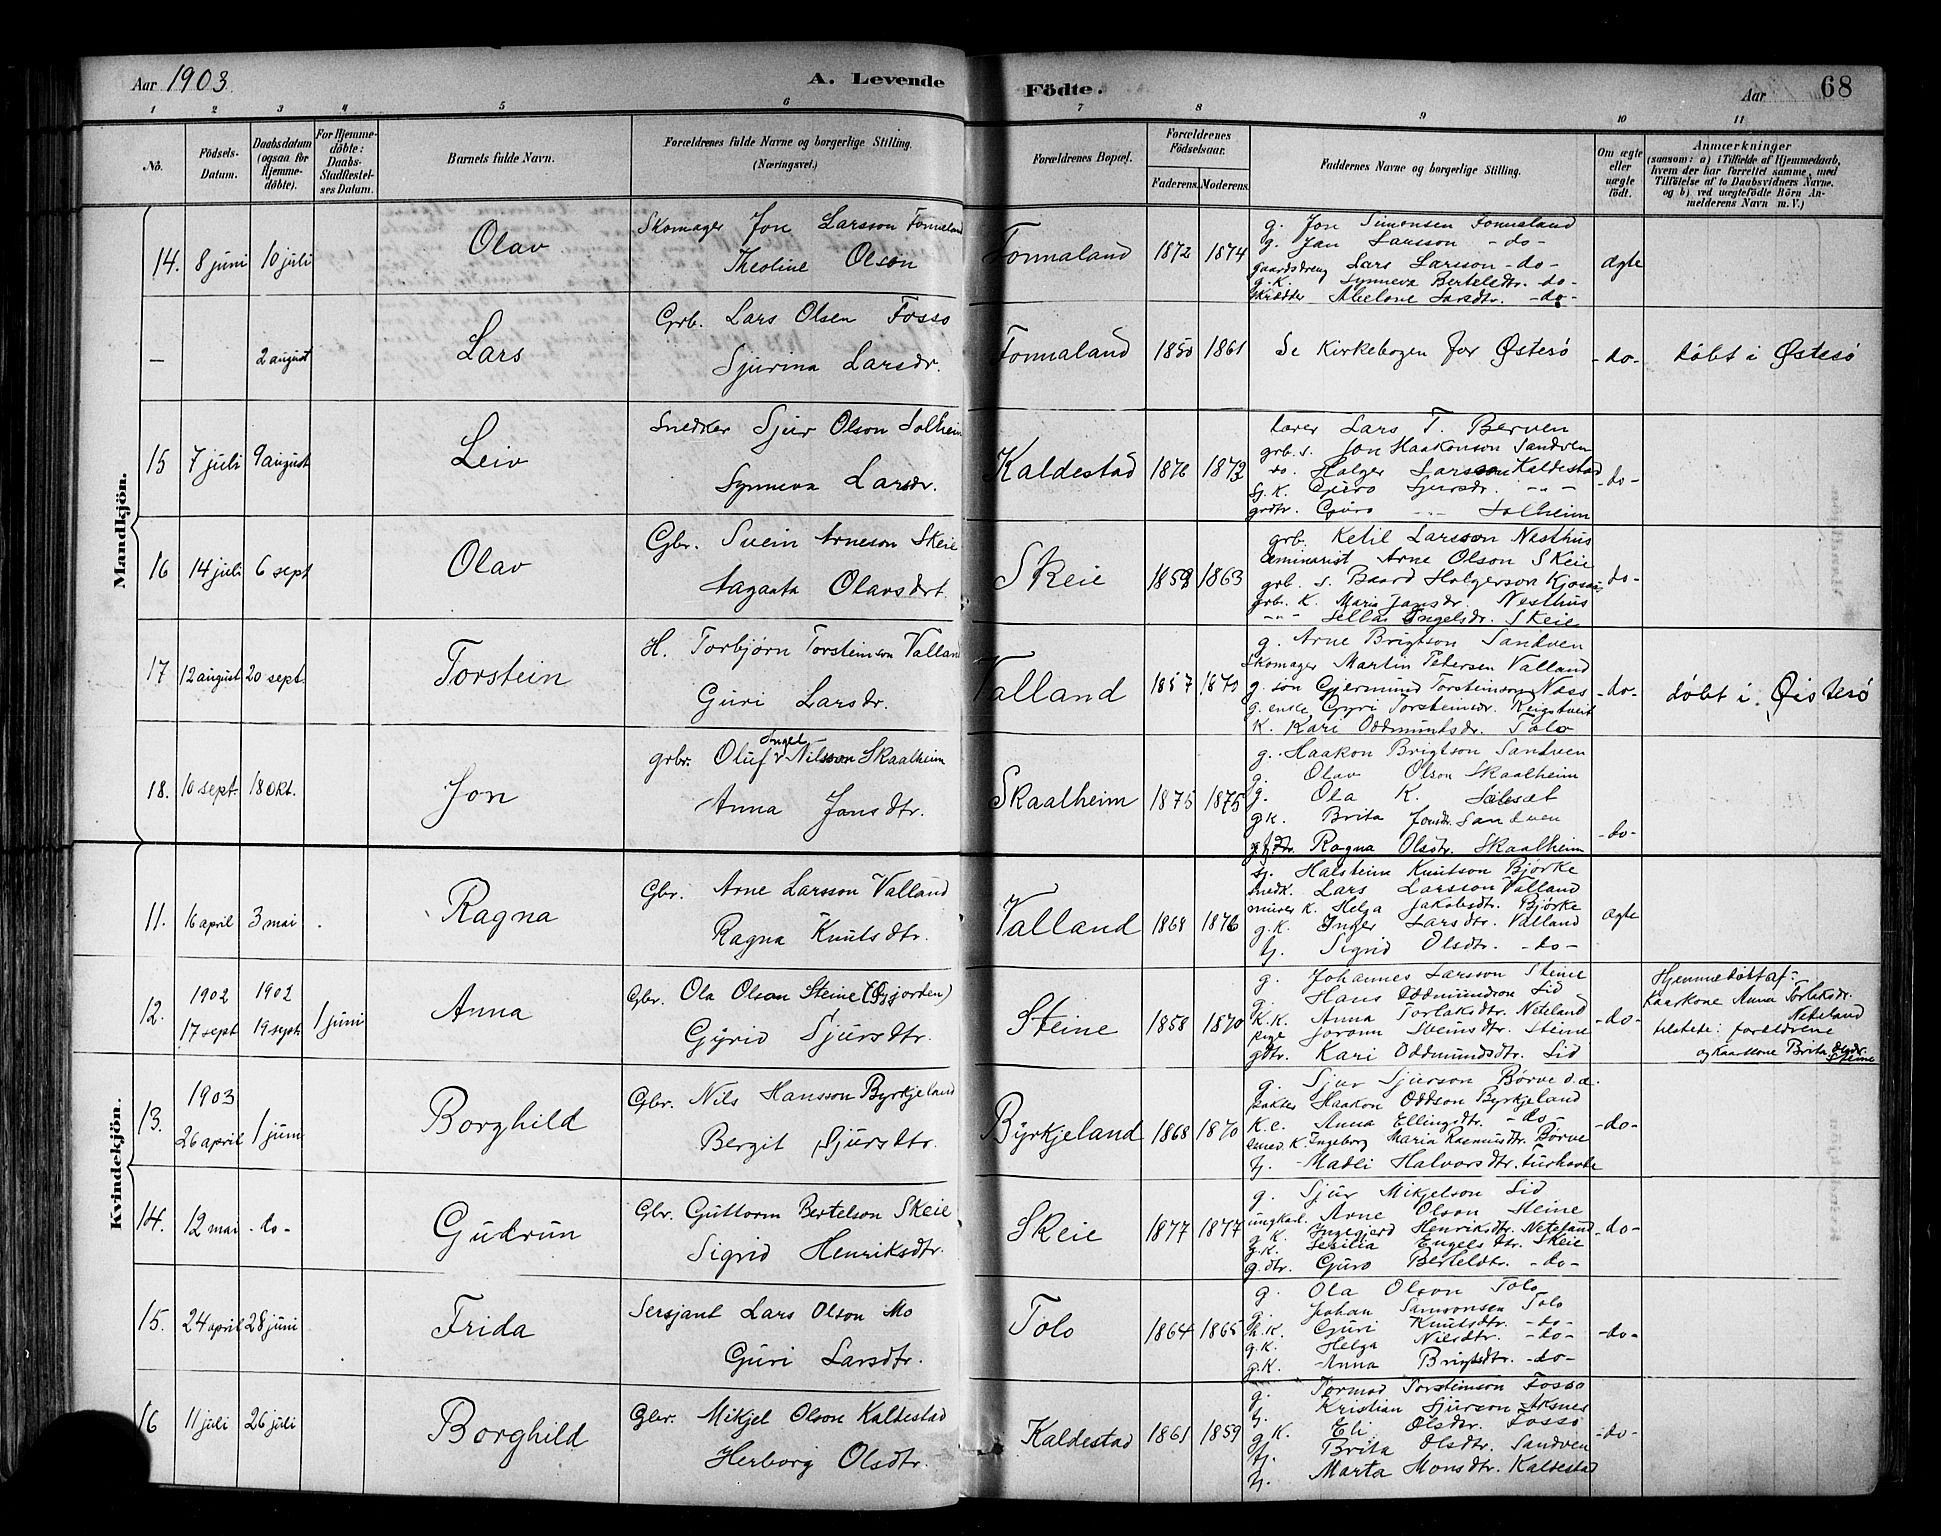 Aar 1903. A. Levende Födte. Aar 68
1 2 3 4 5 6 7 8 9 10 11
No. Födsels-Datum. Daabsdatum (ogsaa for Hjemme-döbte). For Hjemme-döbte: Daabs-Stadfæstel-ses Datum. Barnets fulde Navn. Forældrenes fulde Navne og borgerlige Stilling. (Næringsvei.) Forældrenes Bopæl. Forældrenes Födselsaar. Faderens. Moderens. Faddernes Navne og borgerlige Stilling. Om ægte eller uægte födt. Anmærkninger (saasom: a) i Tilfælde af Hjemmedaab, hvem der har forrettet samme, med Tilföielse af to Daabsvidners Navne. og b) ved uægtefödte Börn An-melderens Navn m. V.)
Mandkjön.
14. 8 juni 10 juli Olav Skomager Jon Larsson Fonnaland
Theoline Olson
Fonnaland 1872 1874 g. Jon Simonsen Fonnaland
g. Jan Larsson -do-
gaardsdreng Lars Larsson -do-
g.k. Synneva Berteldtr. -do-
Abelone Larsdtr. -do-
ægte
— 2 august Lars Grb. Lars Olsen Fosso
Sjurina Larsdr.
Fonnaland 1850 1861 Se Kirkebogen for Østesö -do- döbt i Østesö
15 7 juli 9 august Leiv Snedker Sjur Olson Solheim
Synneva Larsdr.
Kaldestad 1876 1873 Lærer Lars T. Berven
grb. s. Jon Haakonson Sandven
do. Holger Larsson Kaldestad
Guro Sjursdr. - " -
Guro - - - Solheim
-do-
16 14 juli 6 sept Olav Gbr. Svein Arneson Skeie
Aagaata Olavsdrt.
Skeie 1859 1863 grb. Ketil Larsson Nesthus
Seminarist Arne Olson Skeie
grb. s. Baard Holgerson
grb. K. Maria Jansdr. Nesthus
- " - Sellai Engelsdr. Skeie
-do-
17 12 august 20 sept. Torstein H. Torbjørn Torsteinson Valland
Guri Larsdr.
Valland 1857 1870 g. Arne Brigtson Sandven
Skomager Martin Petersen Valland
g. søn Gjermund Torsteinson Næss
g. enke Gyri Torsteinsdr.
K. Kari Oddmundsdr. Tolo
-do- döbt i Øistesö
18. 10 sept. 18 Okt. Jon grbr. Oluf Engel Nilsson Skaalheim
Anna Jonsdtr.
Skaalheim 1875 1875 g. Haakon Brigtson Sandven
g. Olav Olson Skaalheim
g. Ola K.
g k. Brita Jonsdr. Sandven
Ragna Olsdtr. Skaalheim
-do-
Kvindekjön.
11. 16 april 3 mai Ragna Gbr. Arne Larsson Valland
Ragna Knutsdtr.
Valland 1868 1876 Halsteine Knutson Bjørke
Snedk. Lars Larsson Valland
murer K. Helga Jakobsdtr. Bjørke
g.K. Inger Larsdtr. Valland
tj. Sigrid Olsdtr. -do-
ægte
12. 1902 17 sept 1902 19 sept 1 juni Anna Gbr. Ola Olson Steine (Gjorden)
Gyrid Sjursdtr.
Steine 1858 1870 g. Johannes Larsson Steine
g. Hans Oddmundson Lid
K.K. Anna Torlaksdtr. Neteland
Pige Jorann Sveinsdtr. Steine
gdtr. Kari Oddmundsdtr. Lid
-do- Hjemmedöbt af:-
kaarkone Anna Torlaksdr.
Neteland
tilstede: forældrene
og kaarkone Brita Olsdr.
Steine
13. 1903 26 april 1 juni Borghild Gbr. Nils Hansson Byrkjeland
Bergit Sjursdtr.
Byrkjeland 1868 1870 g. Sjur Sjurson Børve d.æ.
Haakon Oddson Byrkjeland
K.e. Anna Ellingsdtr. -do-
smed K. Ingeborg Maria Rasmusdtr. Børve
tj. Madli Halvorsdtr.
-do-
14. 12 mai -do- Gudrun Gbr. Guttorm Bertelson Skeie
Sigrid Henriksdtr.
Skeie 1877 1877 g. Sjur Mikjelson Lid
ungkarl. Arne Olson Steine
g K. Ingegjerd Henriksdtr. Neteland
g.K. Sesilia Engelsdtr. Skeie
g.dtr. Guro Berteldtr. -do-
-do-
15. 24 april 28 juni Frida Sersjant Lars Olson Mo
Guri Larsdtr.
Tolo 1864 1865 g. Ola Olson Tolo
g. Johan Samsonsen Tolo
h.K. Guri Knutsdtr. -do-
g.K. Helga Nilsdtr. -do-
g.K. Anna Brigtsdtr. -do-
-do-
16 11 juli 26 juli Borghild Gbr. Mikjel Olson Kaldestad
Herborg Olsdtr.
Kaldestad 1861 1859 g. Tormod Torsteinson Fosso
tj. Kristian Sjurson Aksnes
g K. Eli Olsdtr. Fosso
tj. Brita Olsdtr. Sandven
tj. Marta Monsdtr. Kaldestad
-do-